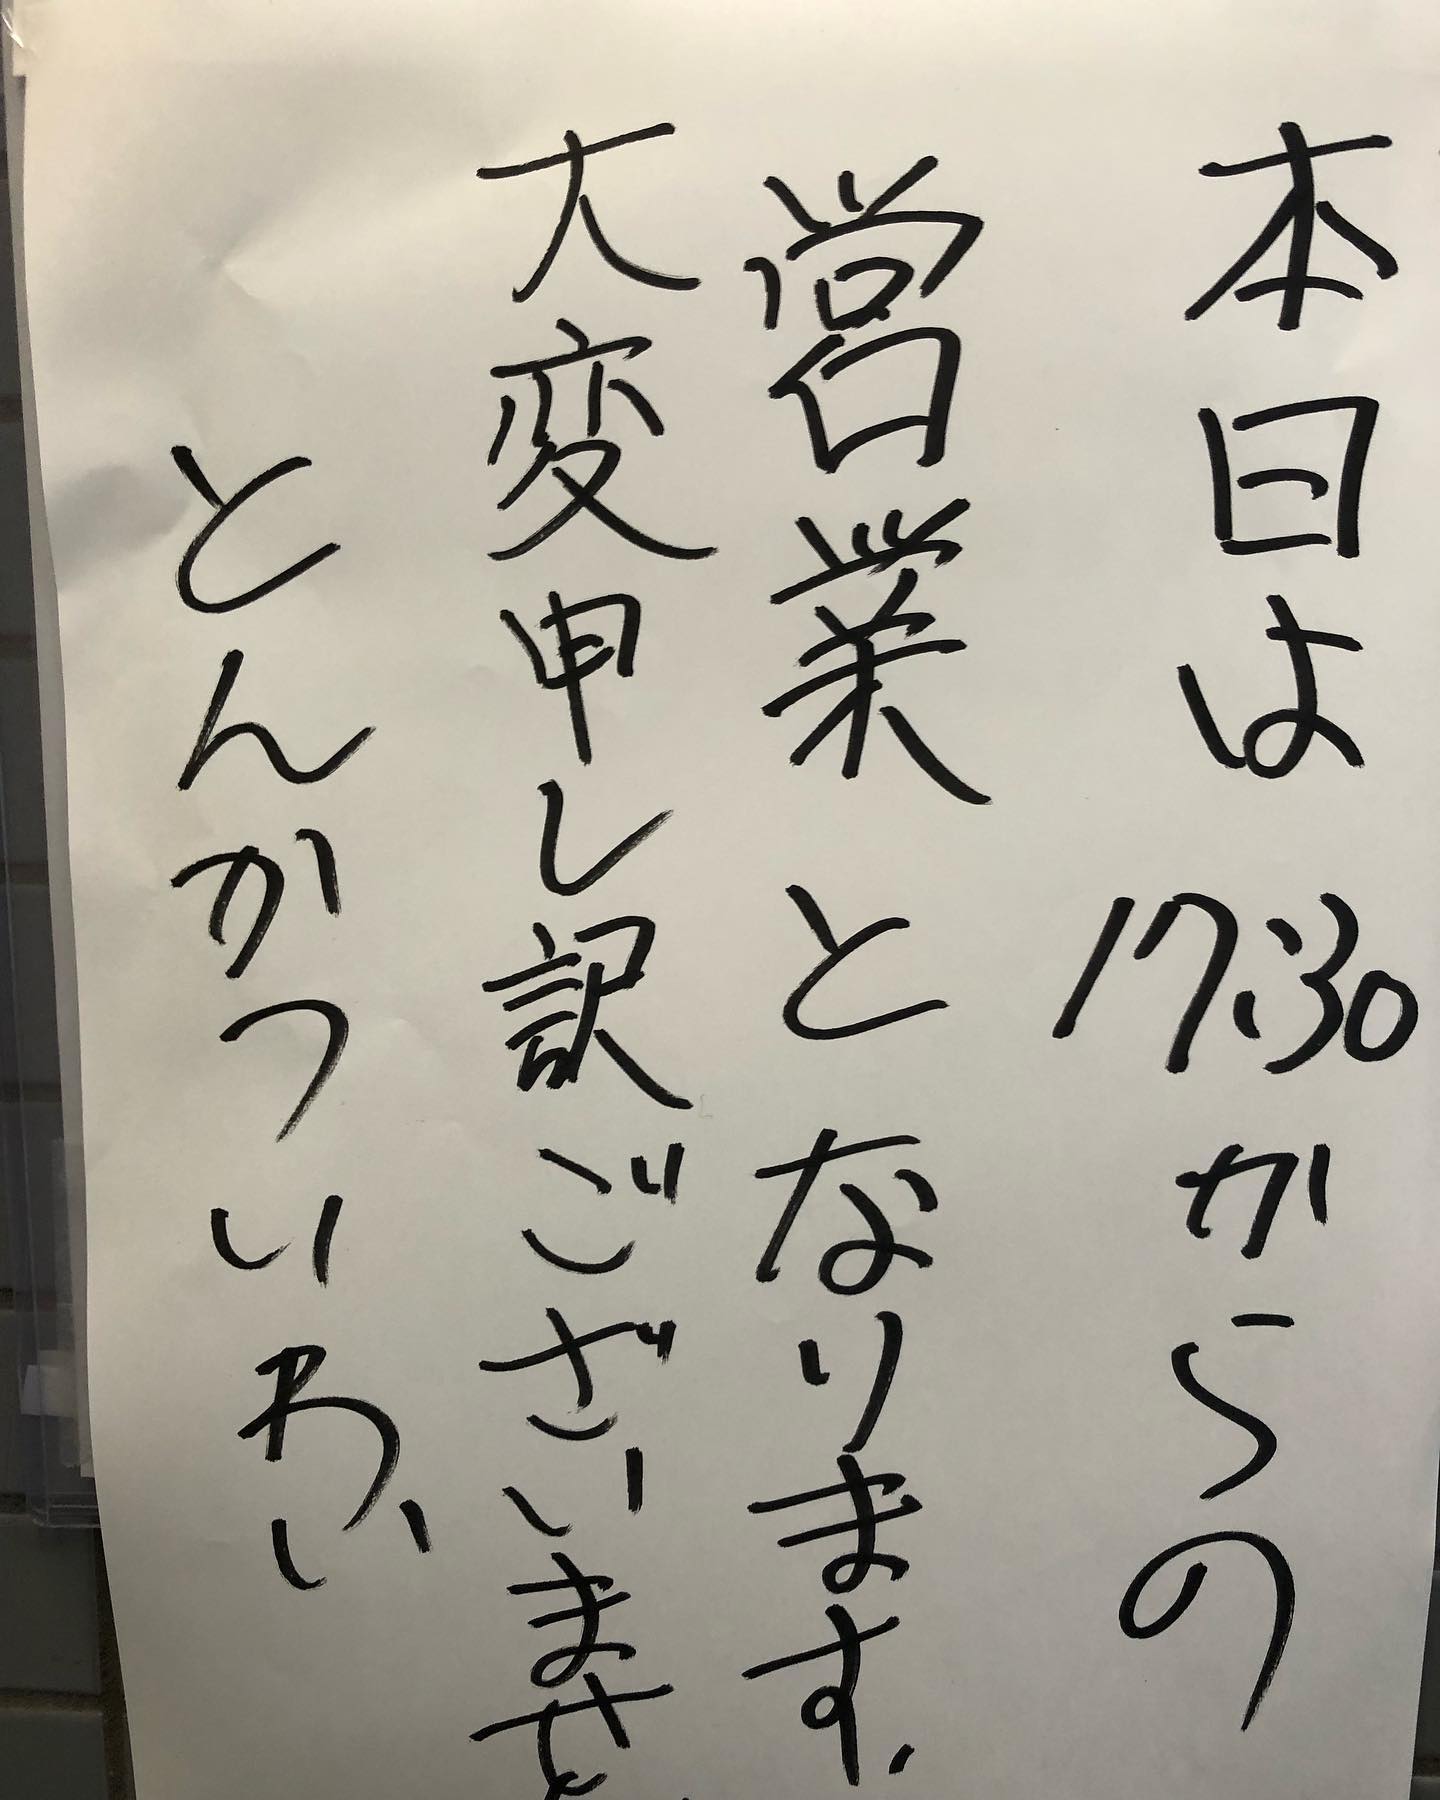 本日は 17:30からの
営業となります。
大変申し訳ございませ
とんかついわい